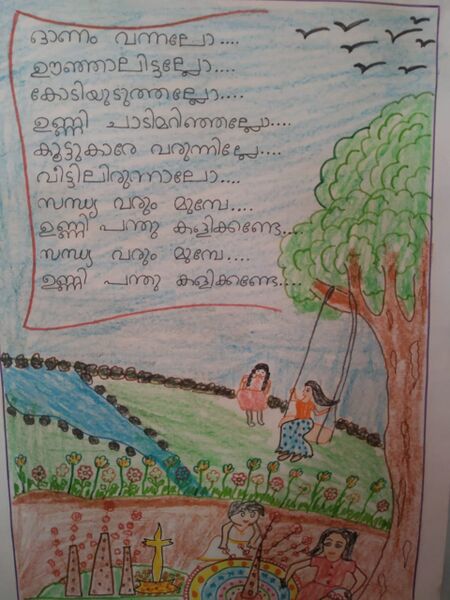 ഓണം വന്നല്ലോ....
ഊഞ്ഞാലിട്ടല്ലോ....
കോടിയുടുത്തല്ലോ....
ഉണ്ണി ചാടിമറിഞ്ഞല്ലോ....
കൂട്ടുകാരേ വരുന്നില്ലേ....
വീട്ടിലിരുന്നാലോ....
സന്ധ്യ വരും മുമ്പേ....
ഉണ്ണി പന്തു കളിക്കണ്ടേ....
സന്ധ്യ വരും മുമ്പേ....
ഉണ്ണി പന്തു കളിക്കണ്ടേ....